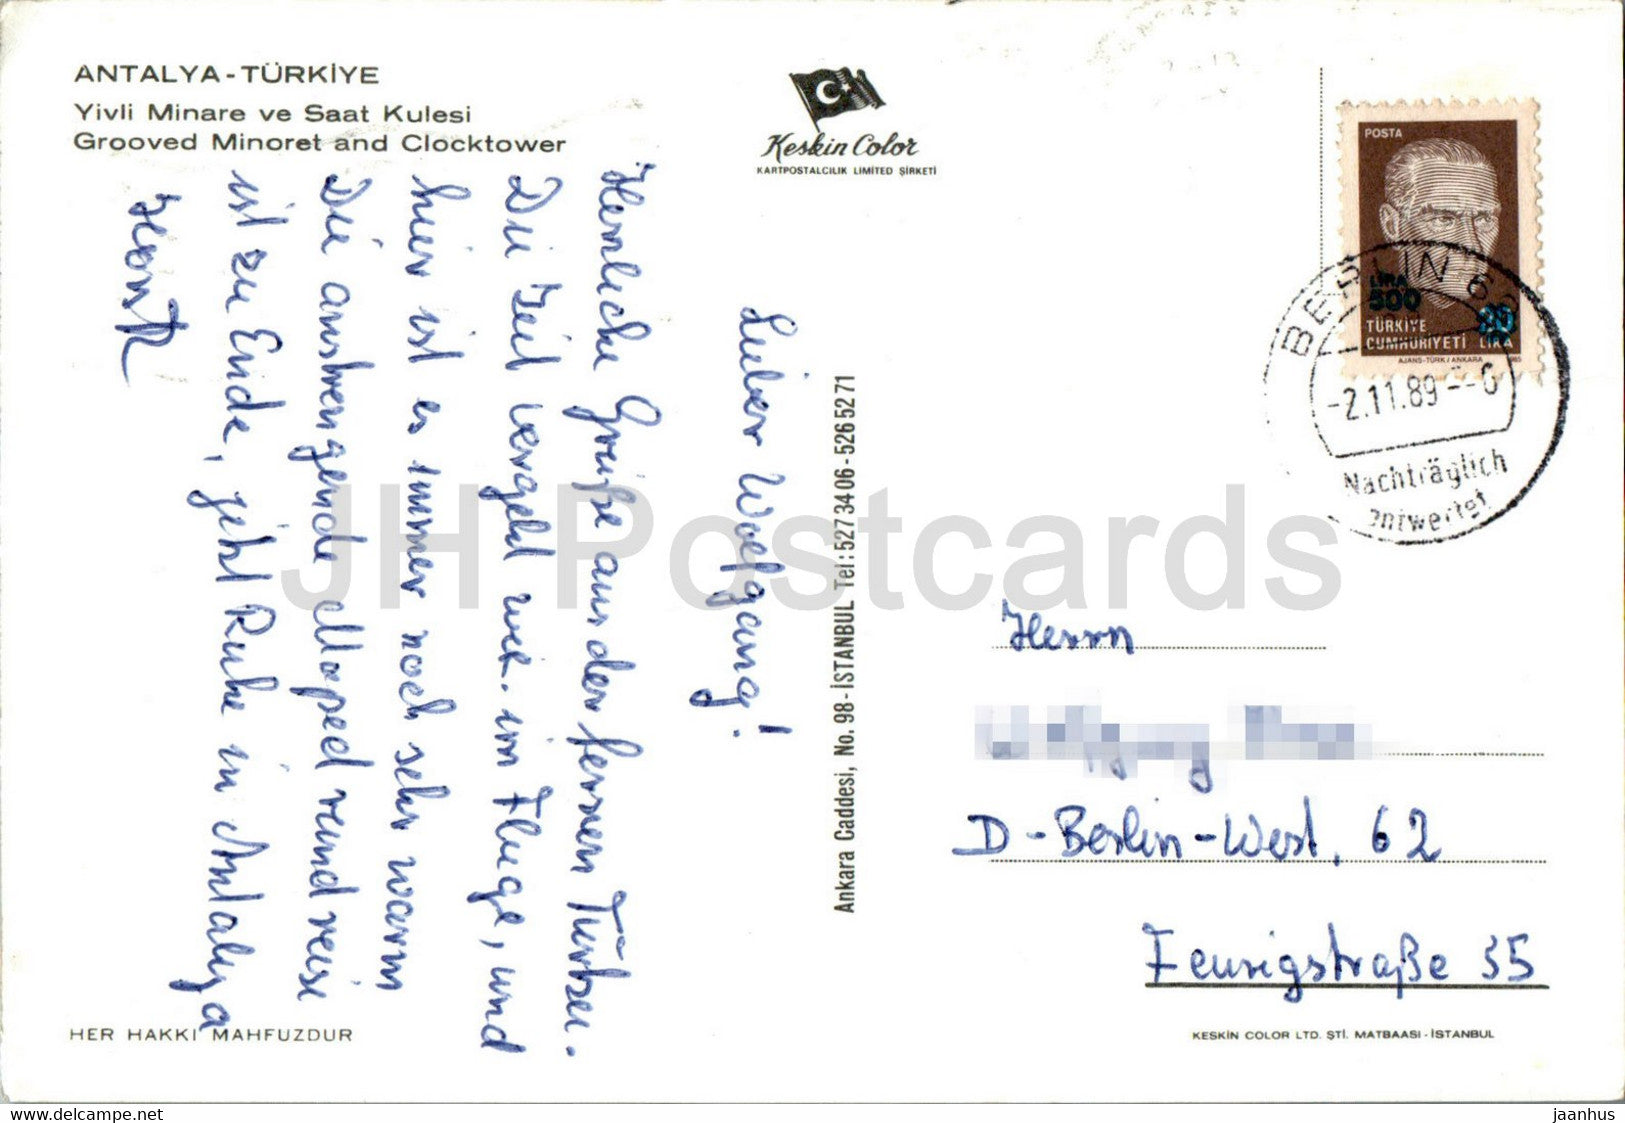 ANTALYA - TÜRKİYE
Yivli Minare ve Saat Kulesi
Grooved Minoret and Clocktower
Keskin Color
KARTPOSTALCILIK LIMITED ŞİRKETİ
POSTA
LIRA
500
20
TÜRKİYE
CUMHURİYETİ LİRA
AJANS-TÜRK / ANKARA 1985
BERLIN 6
-2.11.89
Nachträglich
entwertet
Lieber Wolfgang!
Herzliche Grüße aus der fernen Türkei.
Die Zeit vergeht wie im Fluge, und
hier ist es immer noch sehr warm
Die anstrengende Moped rundreise
ist zu Ende, jetzt Ruhe in Antalya
Horst
Ankara Caddesi, No. 98 - İSTANBUL Tel: 527 34 06 - 526 52 71
Herrn
D-Berlin-West. 62
Feurigstraße 35
HER HAKKI MAHFUZDUR
KESKİN COLOR LTD. ŞTİ. MATBAASI - İSTANBUL
JH Postcards
www.delcampe.net
jaanhus